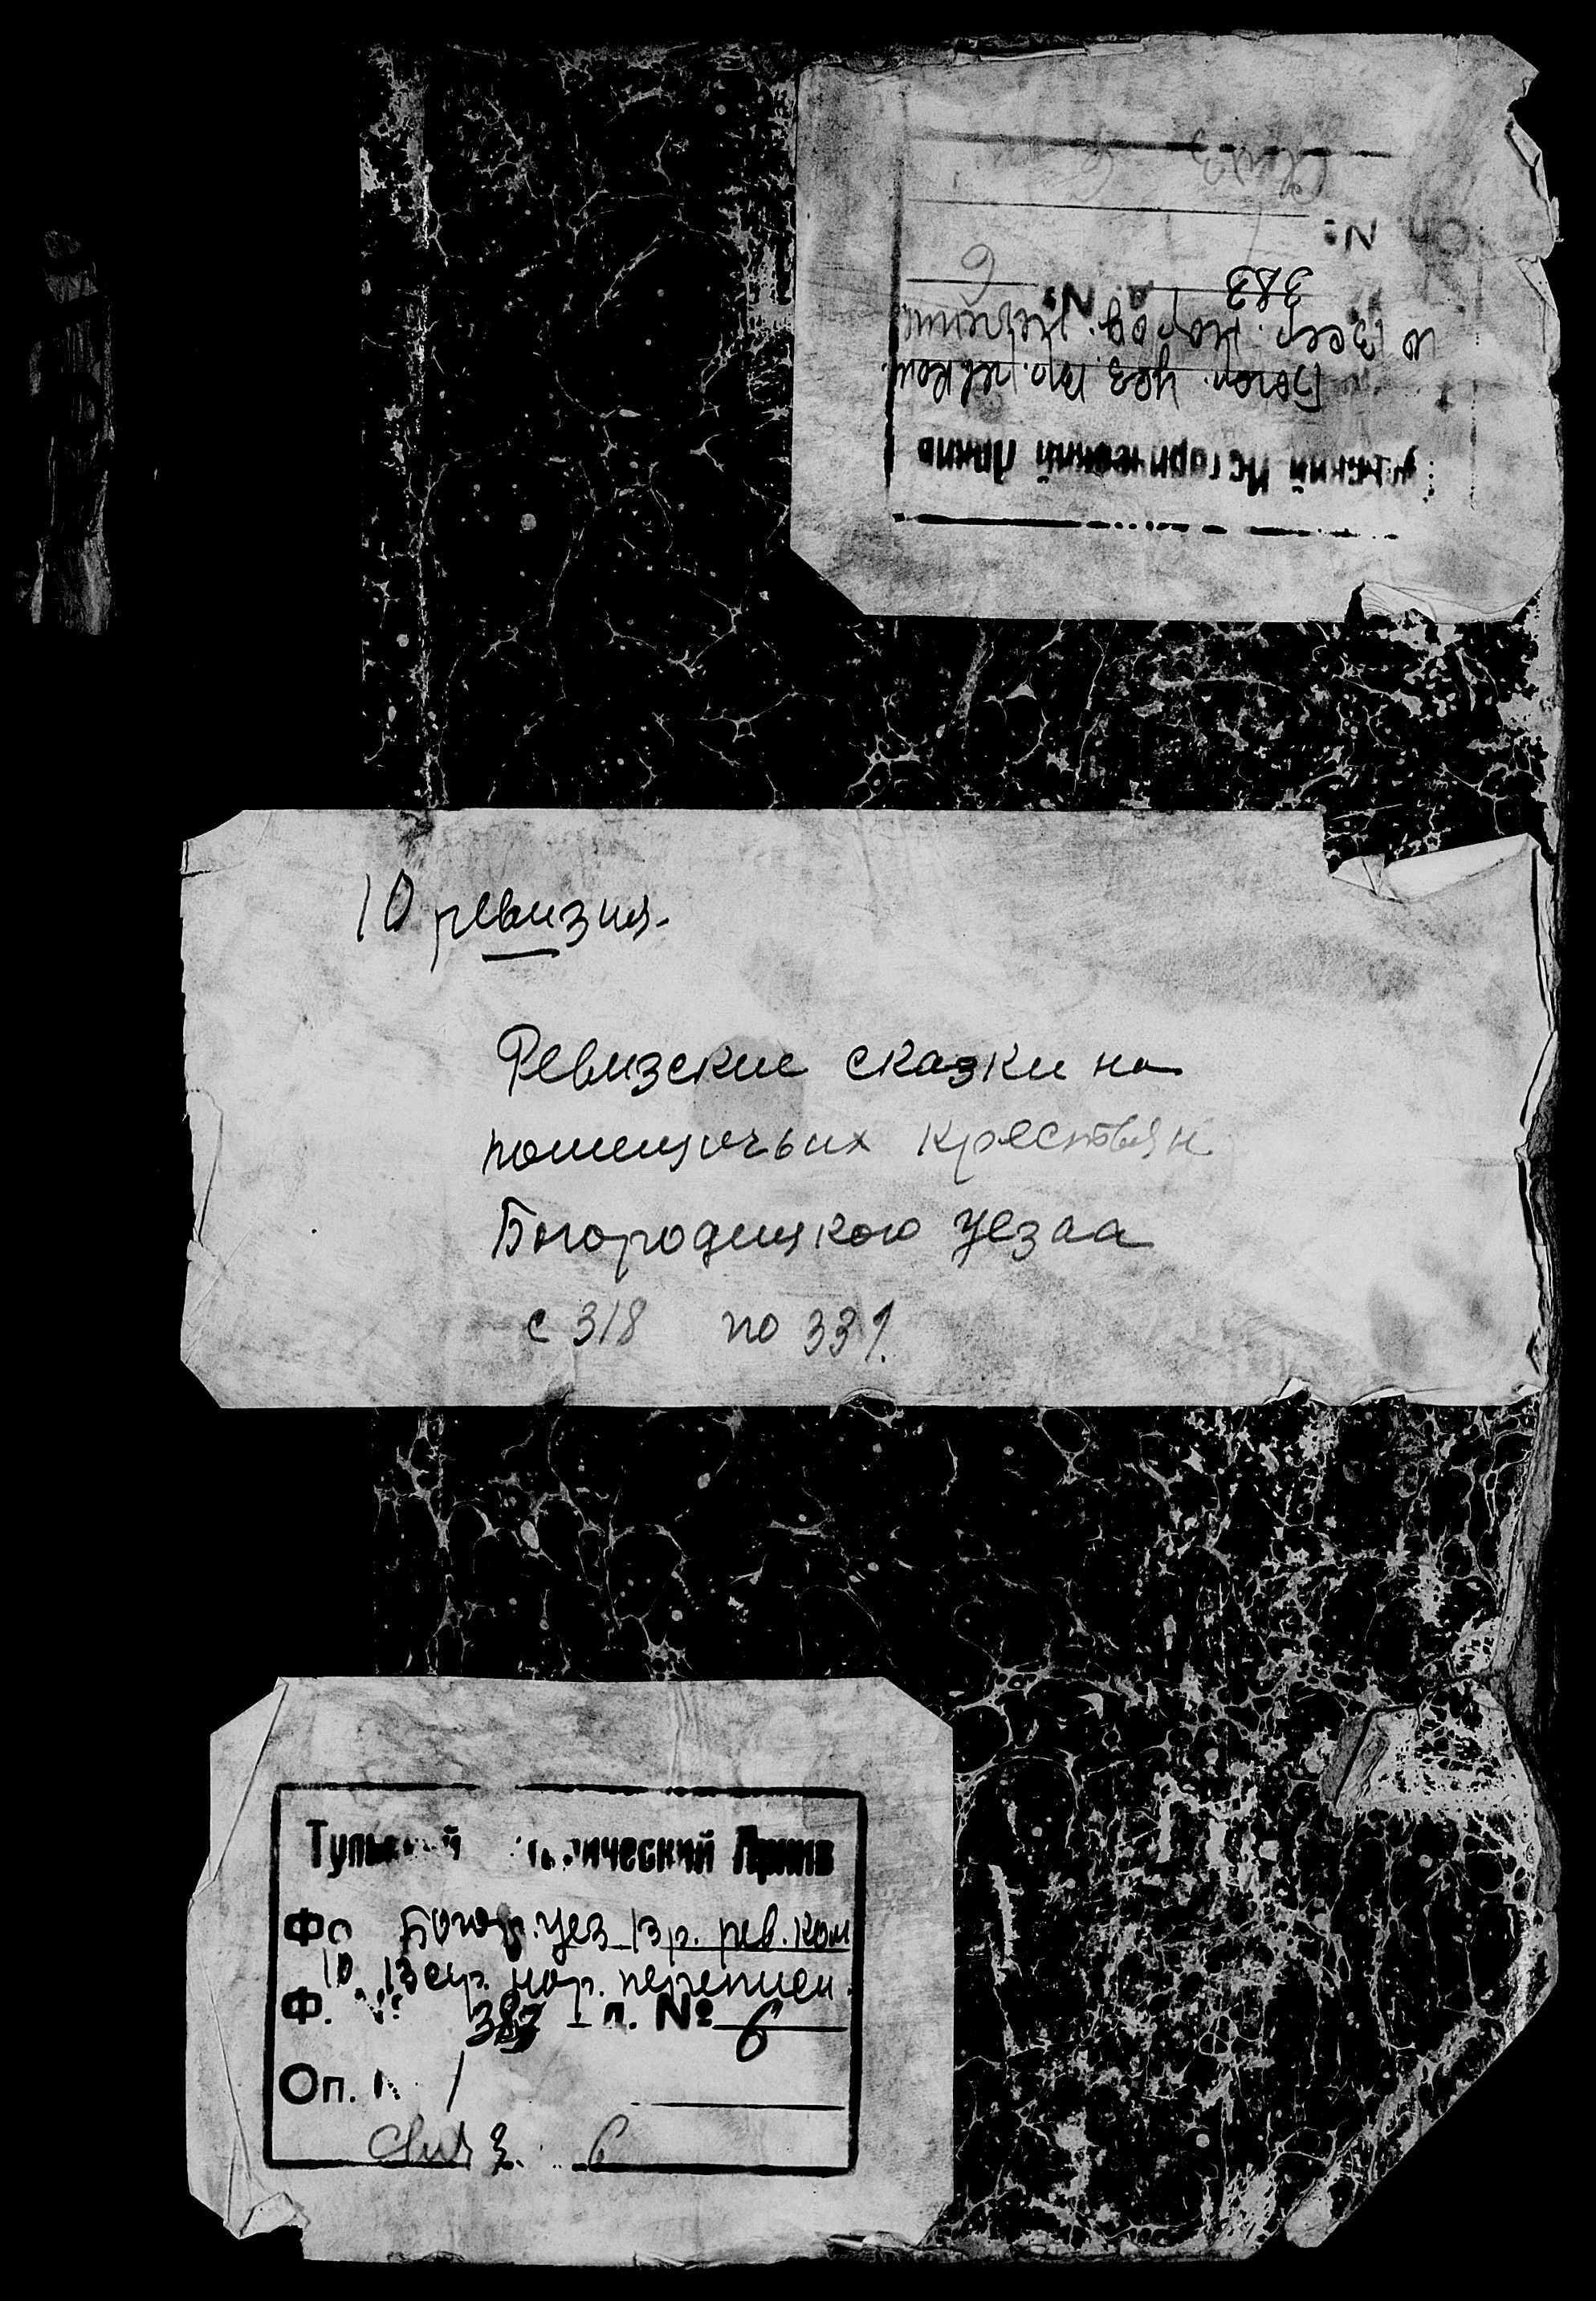 Исторический Архив
Богор. уез. вр. рев. ком.
10 Всер. народ. перепис
383 д. № 6
№
Связ 6
10 ревизия.
Ревизские сказки на
помещичьих крестьян
Богородицкого уезда
с 318 по 331.
Тульский исторический Архив
Фо Богор. уез вр. рев. ком
10 Всер. нар. переписи.
Ф. № 383 д. № 6
Оп. № 1
Связ. 6